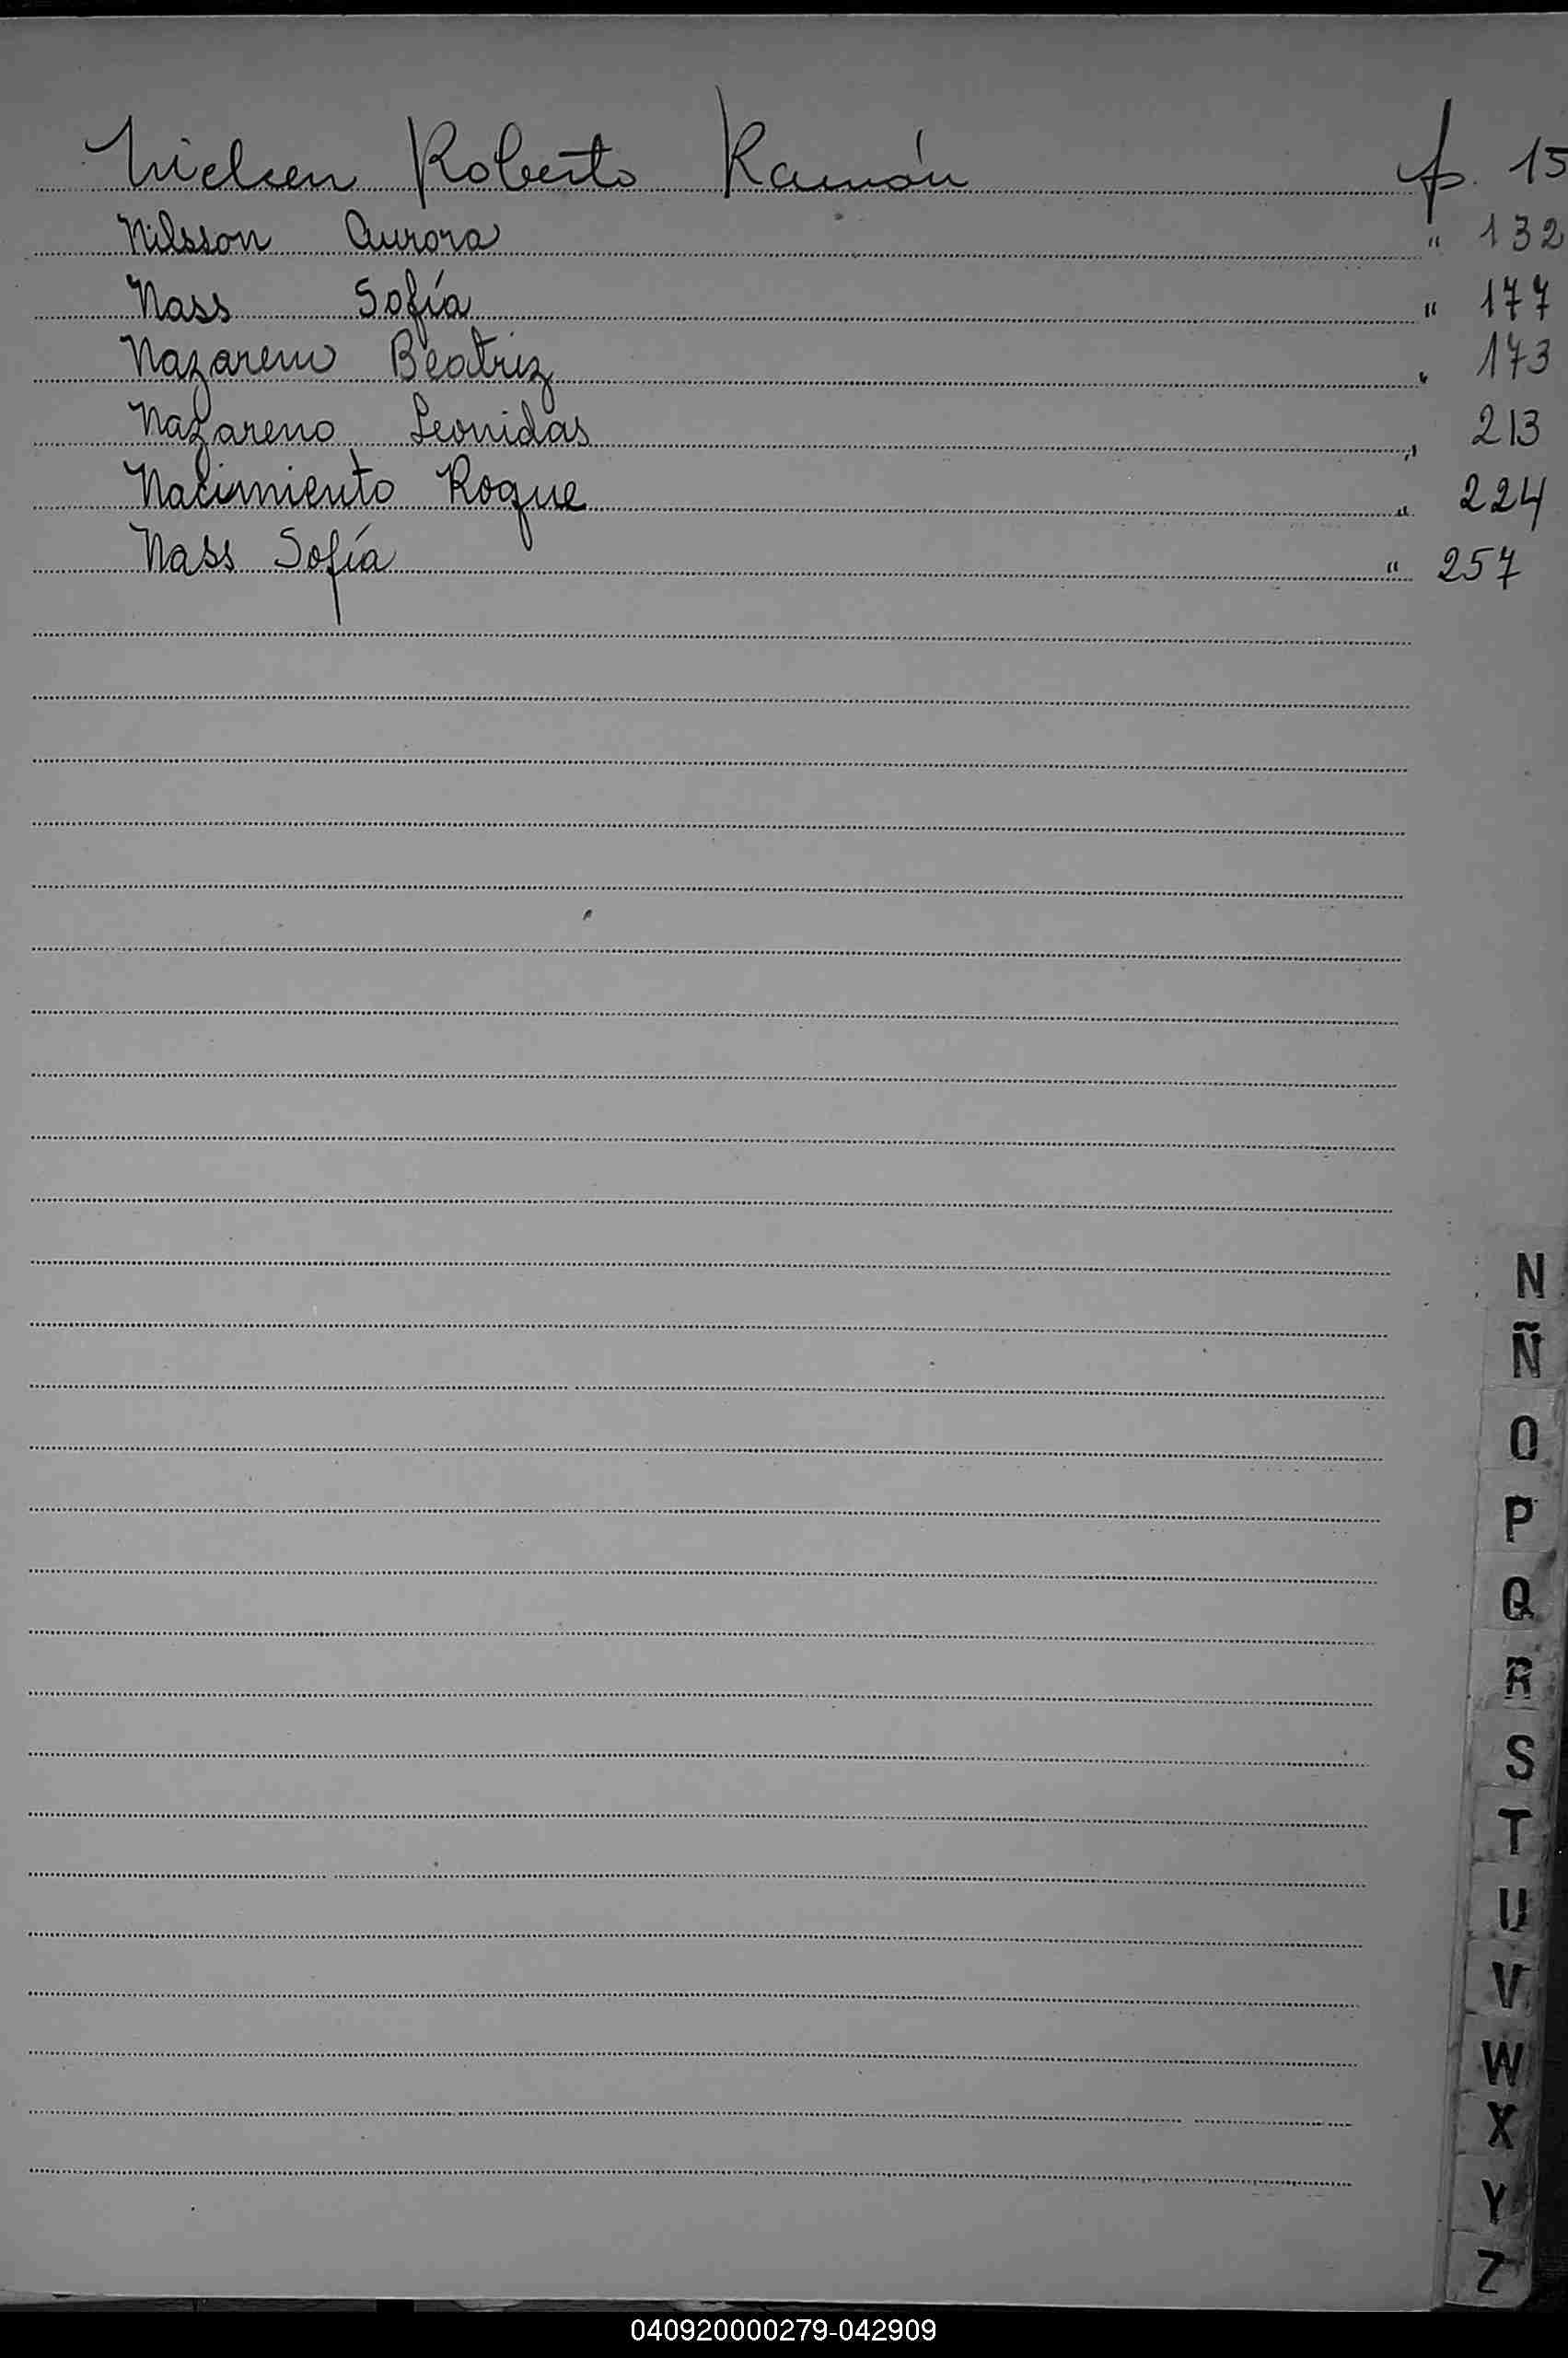 Nielsen Roberto Ramón f. 15
Nilsson Aurora " 132
Nass Sofía " 177
Nazareno Beatriz " 173
Nazareno Leonidas " 213
Nacimiento Roque " 224
Nass Sofía " 257
N
Ñ
O
P
Q
R
S
T
U
V
W
X
Y
Z
040920000279-042909